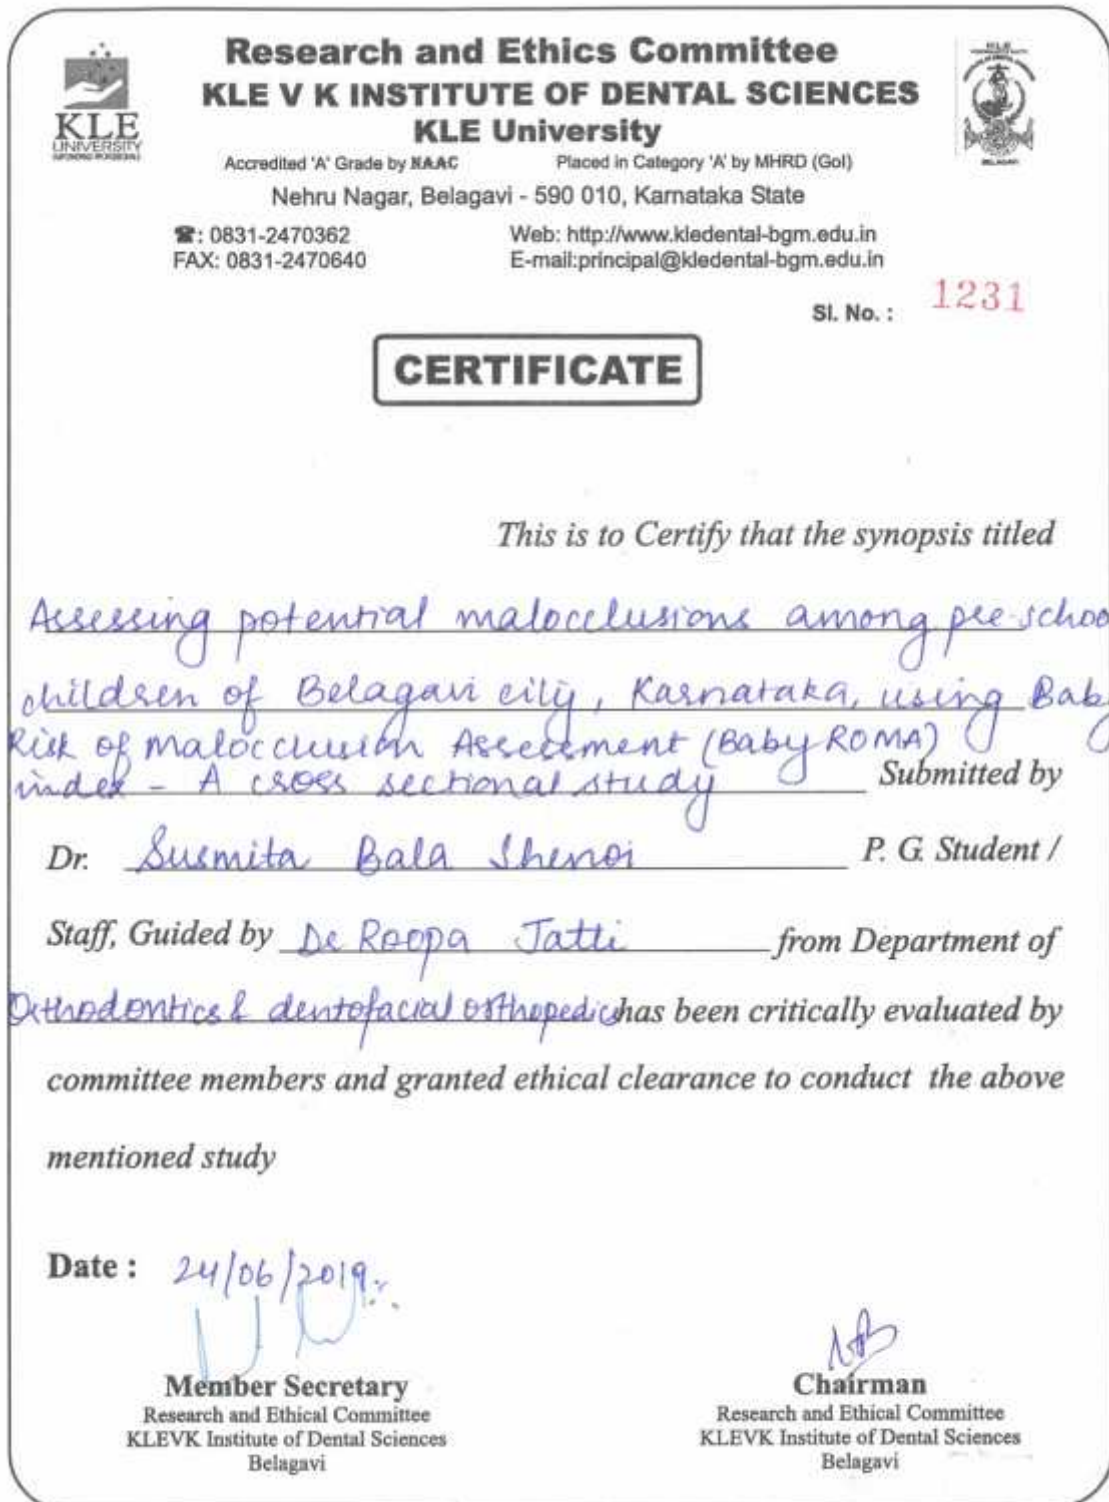 Research and Ethics Committee
KLE V K INSTITUTE OF DENTAL SCIENCES
KLE University
KLE
UNIVERSITY
BELAGAVI
Accredited 'A' Grade by NAAC Placed in Category 'A' by MHRD (GoI)
Nehru Nagar, Belagavi - 590 010, Karnataka State
☎: 0831-2470362 Web: http://www.kledental-bgm.edu.in
FAX: 0831-2470640 E-mail:principal@kledental-bgm.edu.in
Sl. No. : 1231
CERTIFICATE
This is to Certify that the synopsis titled
Assessing potential malocclusions among pre-schoo
children of Belagavi city, Karnataka, using Baby
Risk of Malocclusion Assessment (Baby ROMA)
index - A cross sectional study Submitted by
Dr. Susmita Bala Shenoi P. G. Student /
Staff, Guided by Dr Roopa Jatti from Department of
Orthodontics & dentofacial orthopedics has been critically evaluated by
committee members and granted ethical clearance to conduct the above
mentioned study
Date : 24/06/2019
Member Secretary
Research and Ethical Committee
KLEVK Institute of Dental Sciences
Belagavi
Chairman
Research and Ethical Committee
KLEVK Institute of Dental Sciences
Belagavi